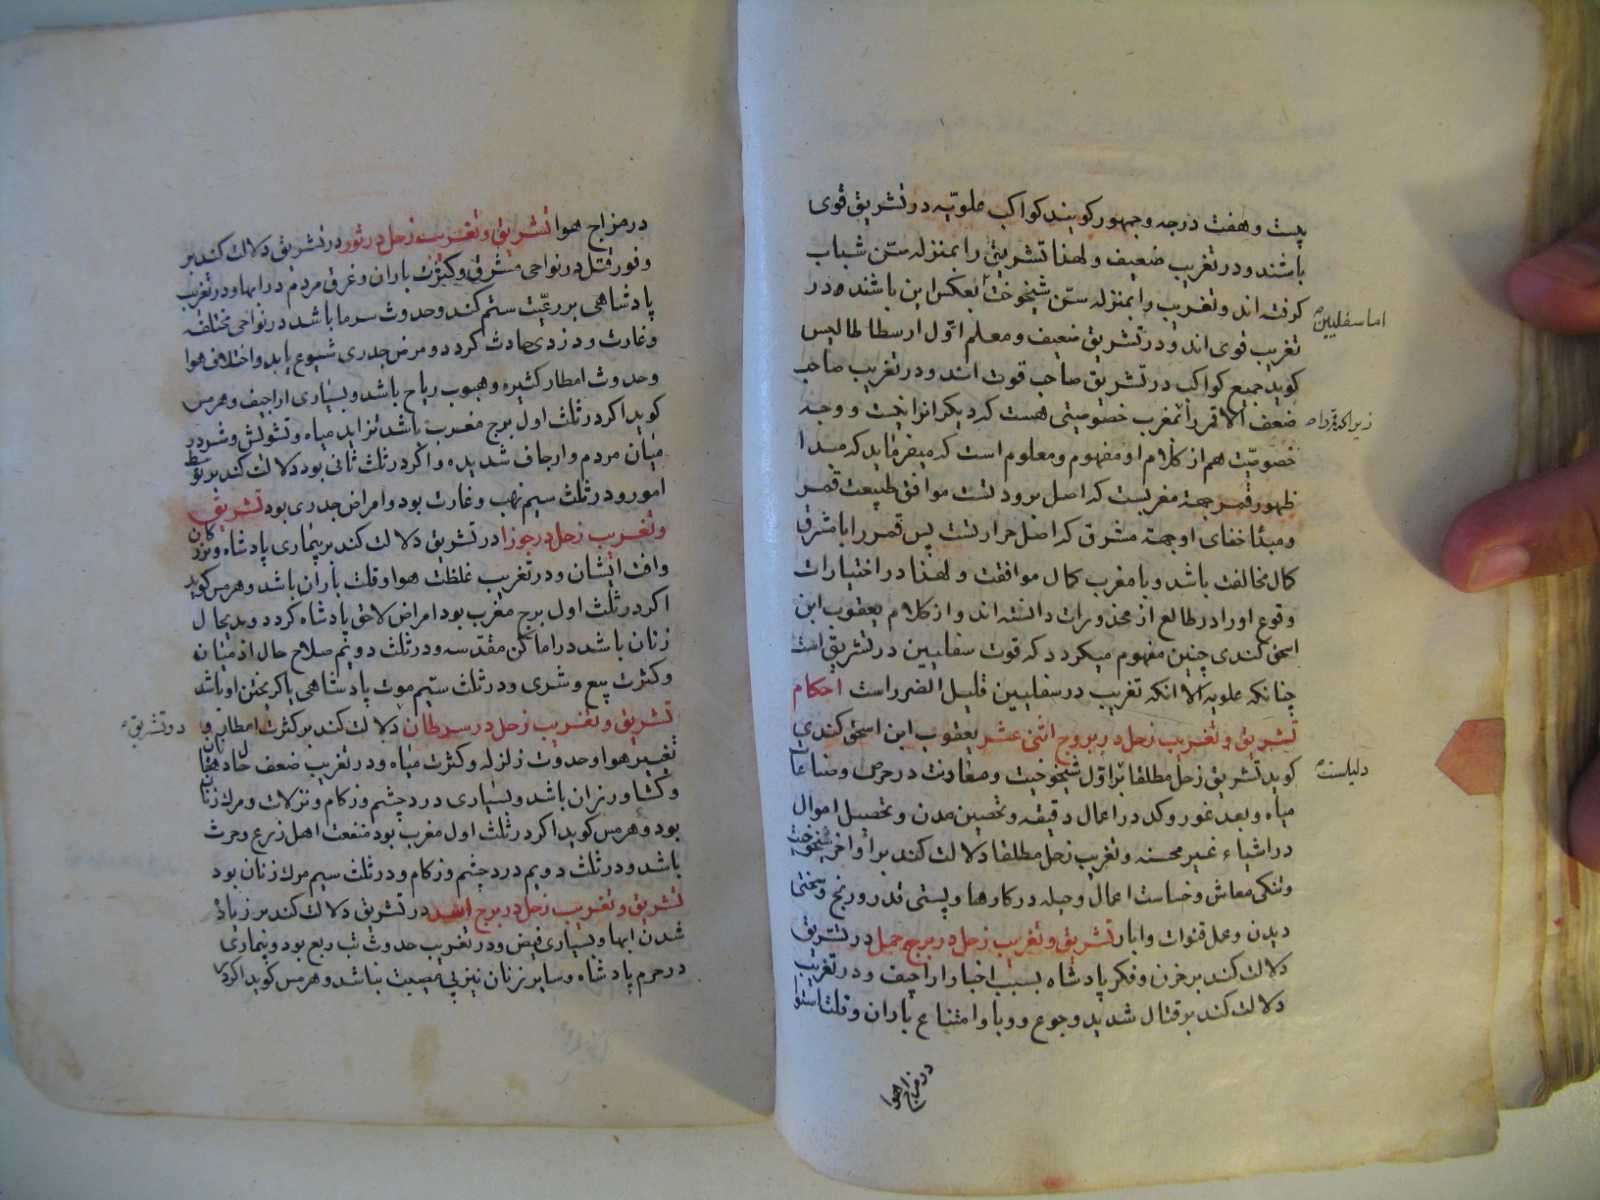 بیست و هفت درجه و جمهور کویند کواکب علویّه در تشریق قوی
باشند و در تغریب ضعیف و لهذا تشریق را بمنزله سنّ شباب
کرفته اند و تغریب را بمنزله سنّ شیخوخت بعکس این باشند در
اما سفلیین
تغریب قوی اند و در تشریق ضعیف و معلم اوّل ارسطاطالیس
کوید جمیع کواکب در تشریق صاحب قوت اند و در تغریب صاحب
ضعف الا قمر را بمغرب خصوصیتی هست که دیکر انرا نیست و وجه
خصوصیّت هم از کلام او مفهوم و معلوم است که میفرماید که مبدا
ظهور قمر جهة مغربست که اصل برودتست موافق طبیعت قمر
و مبدٔا خفای او جهة مشرق که اصل حرارتست پس قمر را با مشرق
کمال مخالفت باشد و با مغرب کمال موافقت و لهذا در اختیارات
وقوع او را در طالع از محذورات دانسته اند و از کلام یعقوب ابن
اسحق کندی چنین مفهوم میکردد که قوت سفلیین در تشریق است
چنانکه علویه الا انکه تغریب در سفلیین قلیل الضرر است احکام
تشریق و تغریب زحل در بروج اثنی عشر یعقوب ابن اسحق کندی
کوید تشریق زحل مطلقا بر اوّل شیخوخیت و معاونت در حرص وضاعات
دلیلست
میاه و بعد غور و کد در اعمال دقیقه و تحصین مدن و تحصیل اموال
در اشیاء غیر محسنه و تغریب زحل مطلقا دلالت کند بر اواخر شیخوخت
و تنکی معاش و خساست اعمال و حیله در کارها و پستی قدر و رنج و سختی
دیدن و عمل قنوات و ابار تشریق و تغریب زحل در برج حمل در تشریق
دلالت کند بر حزن و فکر پادشاه بسبب اخبار اراجیف و در تغریب
دلالت کند بر قتال شدید و جوع و وبا و امتناع باران و قلت استوا
در مزاج هوا
در مزاج هوا تشریق و تغریب زحل در ثور در تشریق دلالت کند بر
وفور قتل در نواحی مشرق و کثرت باران و غرق مردم در ابها و در تغریب
پادشاهی بر رعیّت ستم کند و حدوث سرما باشد در نواحی مختلفه
و غارت و دزدی حادث کردد و مرض جدری شیوع یابد و اختلاف هوا
و حدوث امطار کثیره و هبوب ریاح باشد و بسیاری اراجیف و هرمس
کوید اکر در ثلث اول برج مغرب باشد تزاید میاه و تشویش و شر در
میان مردم و ارجاف شدیده و اکر در ثلث ثانی بود دلالت کند بر توسط
امور و در ثلث سیم نهب و غارت بود و امراض جدری بود تشریق
و تغریب زحل در جوزا در تشریق دلالت کند بر بیماری پادشاه و بزرکان
و افت ایشان و در تغریب غلظت هوا و قلت باران باشد و هرمس کوید
اکر در ثلث اول برج مغرب بود امراض لاحق پادشاه کردد و بدیحال
زنان باشد در اماکن مقدّسه و در ثلث دویم صلاح حال ادمیان
و کثرت بیع و شری و در ثلث سیّم موت پادشاهی یا کریختن او باشد
تشریق و تغریب زحل در سرطان دلالت کند بر کثرت امطار و
در تشریق
تغییر هوا و حدوث زلزله و کثرت میاه و در تغریب ضعف حال دهقانان
و کشاورزان باشد و بسیاری درد چشم و زکام و نزلات و مرک زنان
بود و هرمس کوید اکر در ثلث اول مغرب بود منفعت اهل زرع و حرث
باشد و در ثلث دویم درد چشم و زکام و در ثلث سیم مرک زنان بود
تشریق و تغریب زحل در برج اسد در تشریق دلالت کند بر زیاد
شدن ابها و بسیاری فیض و در تغریب حدوث تب ربع بود و بیماری
در حرم پادشاه و سایر زنان نیز بی مصیبت نباشد و هرمس کوید اکر در